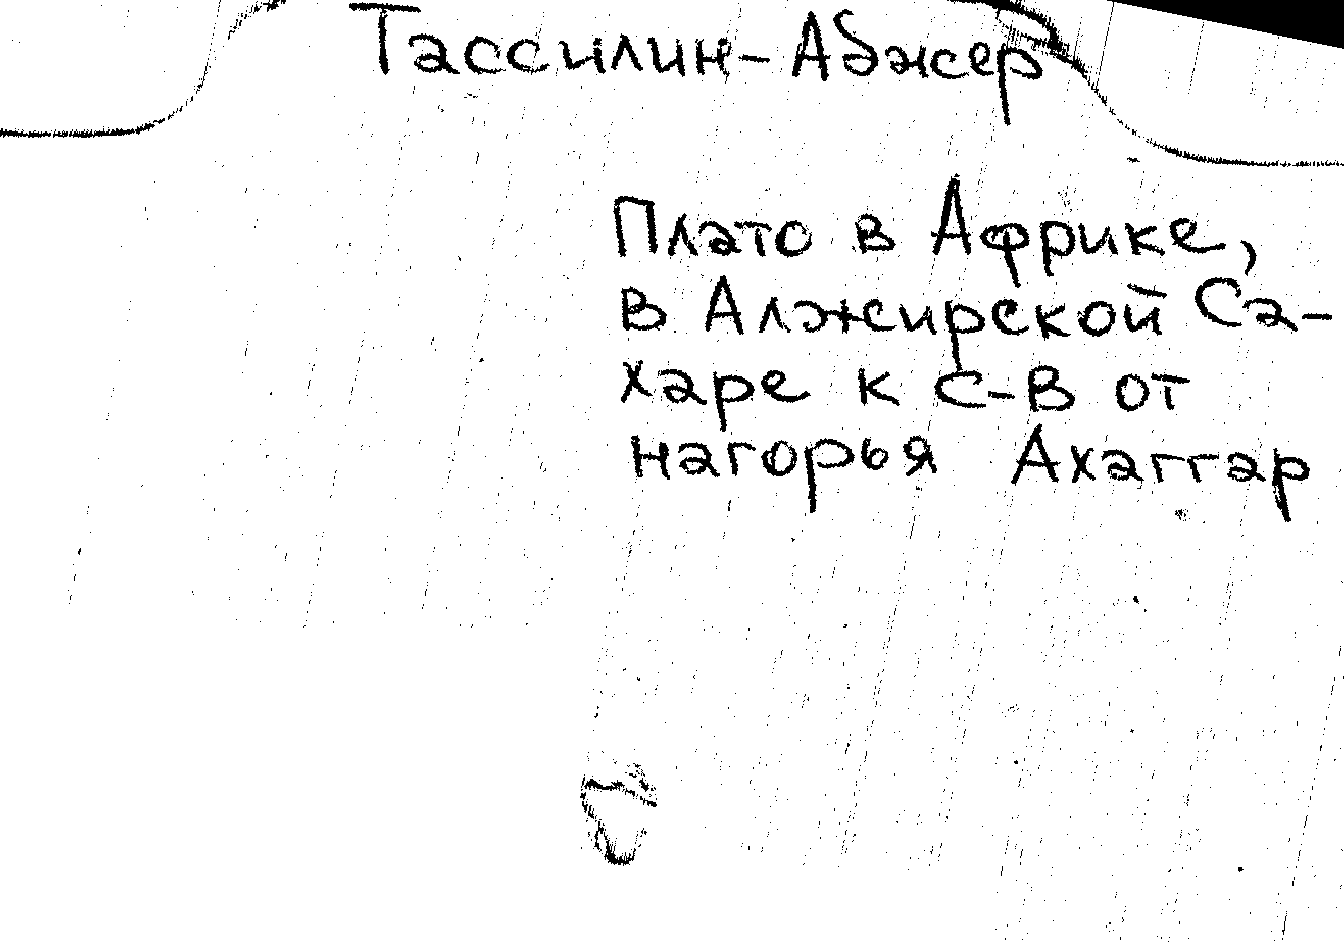 Тассилин-Абжер
Плато в Африке,
в Алжирской Са-
харе к С-В от
нагорья Ахаггар